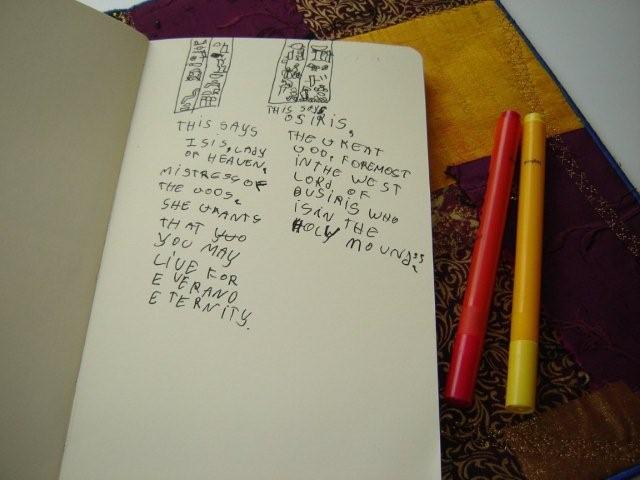 THIS SAYS
ISIS, LADY
OF HEAVEN,
MISTRESS OF
THE GODS.
SHE GRANTS
THAT
YOU MAY
LIVE FOR
EVER AND
ETERNITY.
THIS SAYS
OSIRIS,
THE GREAT
GOD, FOREMOST
IN THE WEST
LORD OF
BUSIRIS WHO
IS IN THE
HOLY MOUND